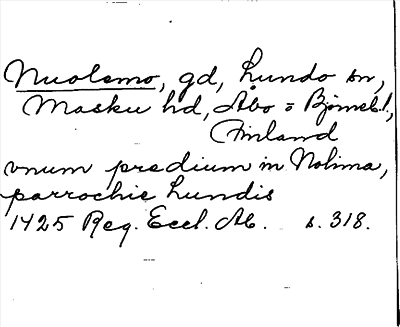 Nuolemo, gd, Lundo sn,
Masku hd, Åbo o Björneb.l,
Finland
vnum predium in Nolima,
parrochie Lundis
1425 Reg. Eccl. Ab. s. 318.